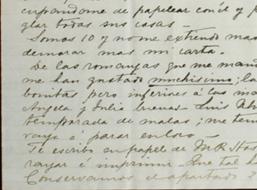 cupandome de papelear con él y p
glar todas sus casas.-
Somos 10 y no me extiendo mas
demorar mas mi carta.-
De las romanzas que me mand
me han gustado muchisimo; la
bonitas pero inferiores á las
Angela y Julia buenas- Luis
temporada de malas; me ten
á parar en loco-
Te escribo en papel de
rayar é imprimir- Que tal
Conservamos el apartado